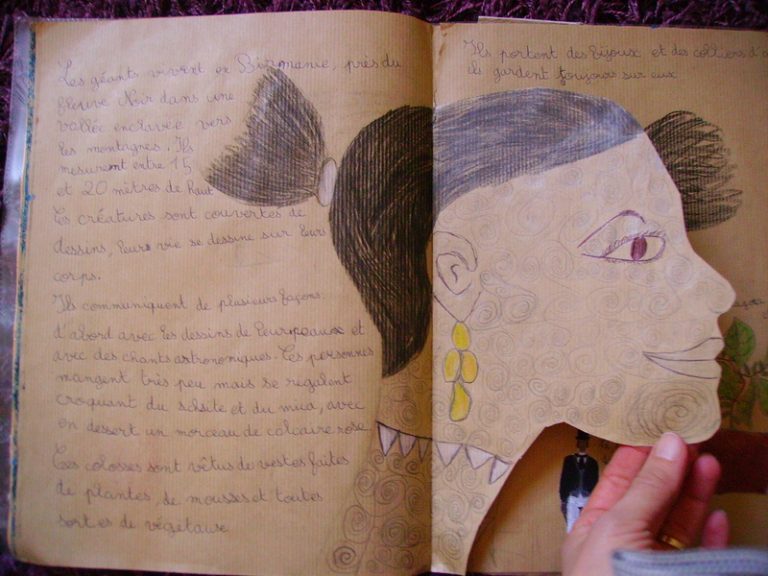 Les géants vivent en Birmanie, près du
fleuve Noir dans une
vallée enclavée vers
les montagnes. Ils
mesureront entre 15
et 20 mètres de haut
Ces créatures sont couvertes de
dessins, leurs vie se dessine sur leurs
corps.
Ils communiquent de plusieurs façons:
d'abord avec les dessins de leur peaux et
avec des chants astronomiques. Ces personnes
mangent très peu mais se régalent
croquant du schite et du mica, avec
en dessert un morceau de calcaire rose
Ces colosses sont vêtus de vestes faites
de plantes, de mousses et toutes
sortes de végétaux
Ils portent des bijoux et des colliers
ils gardent toujours sur eux